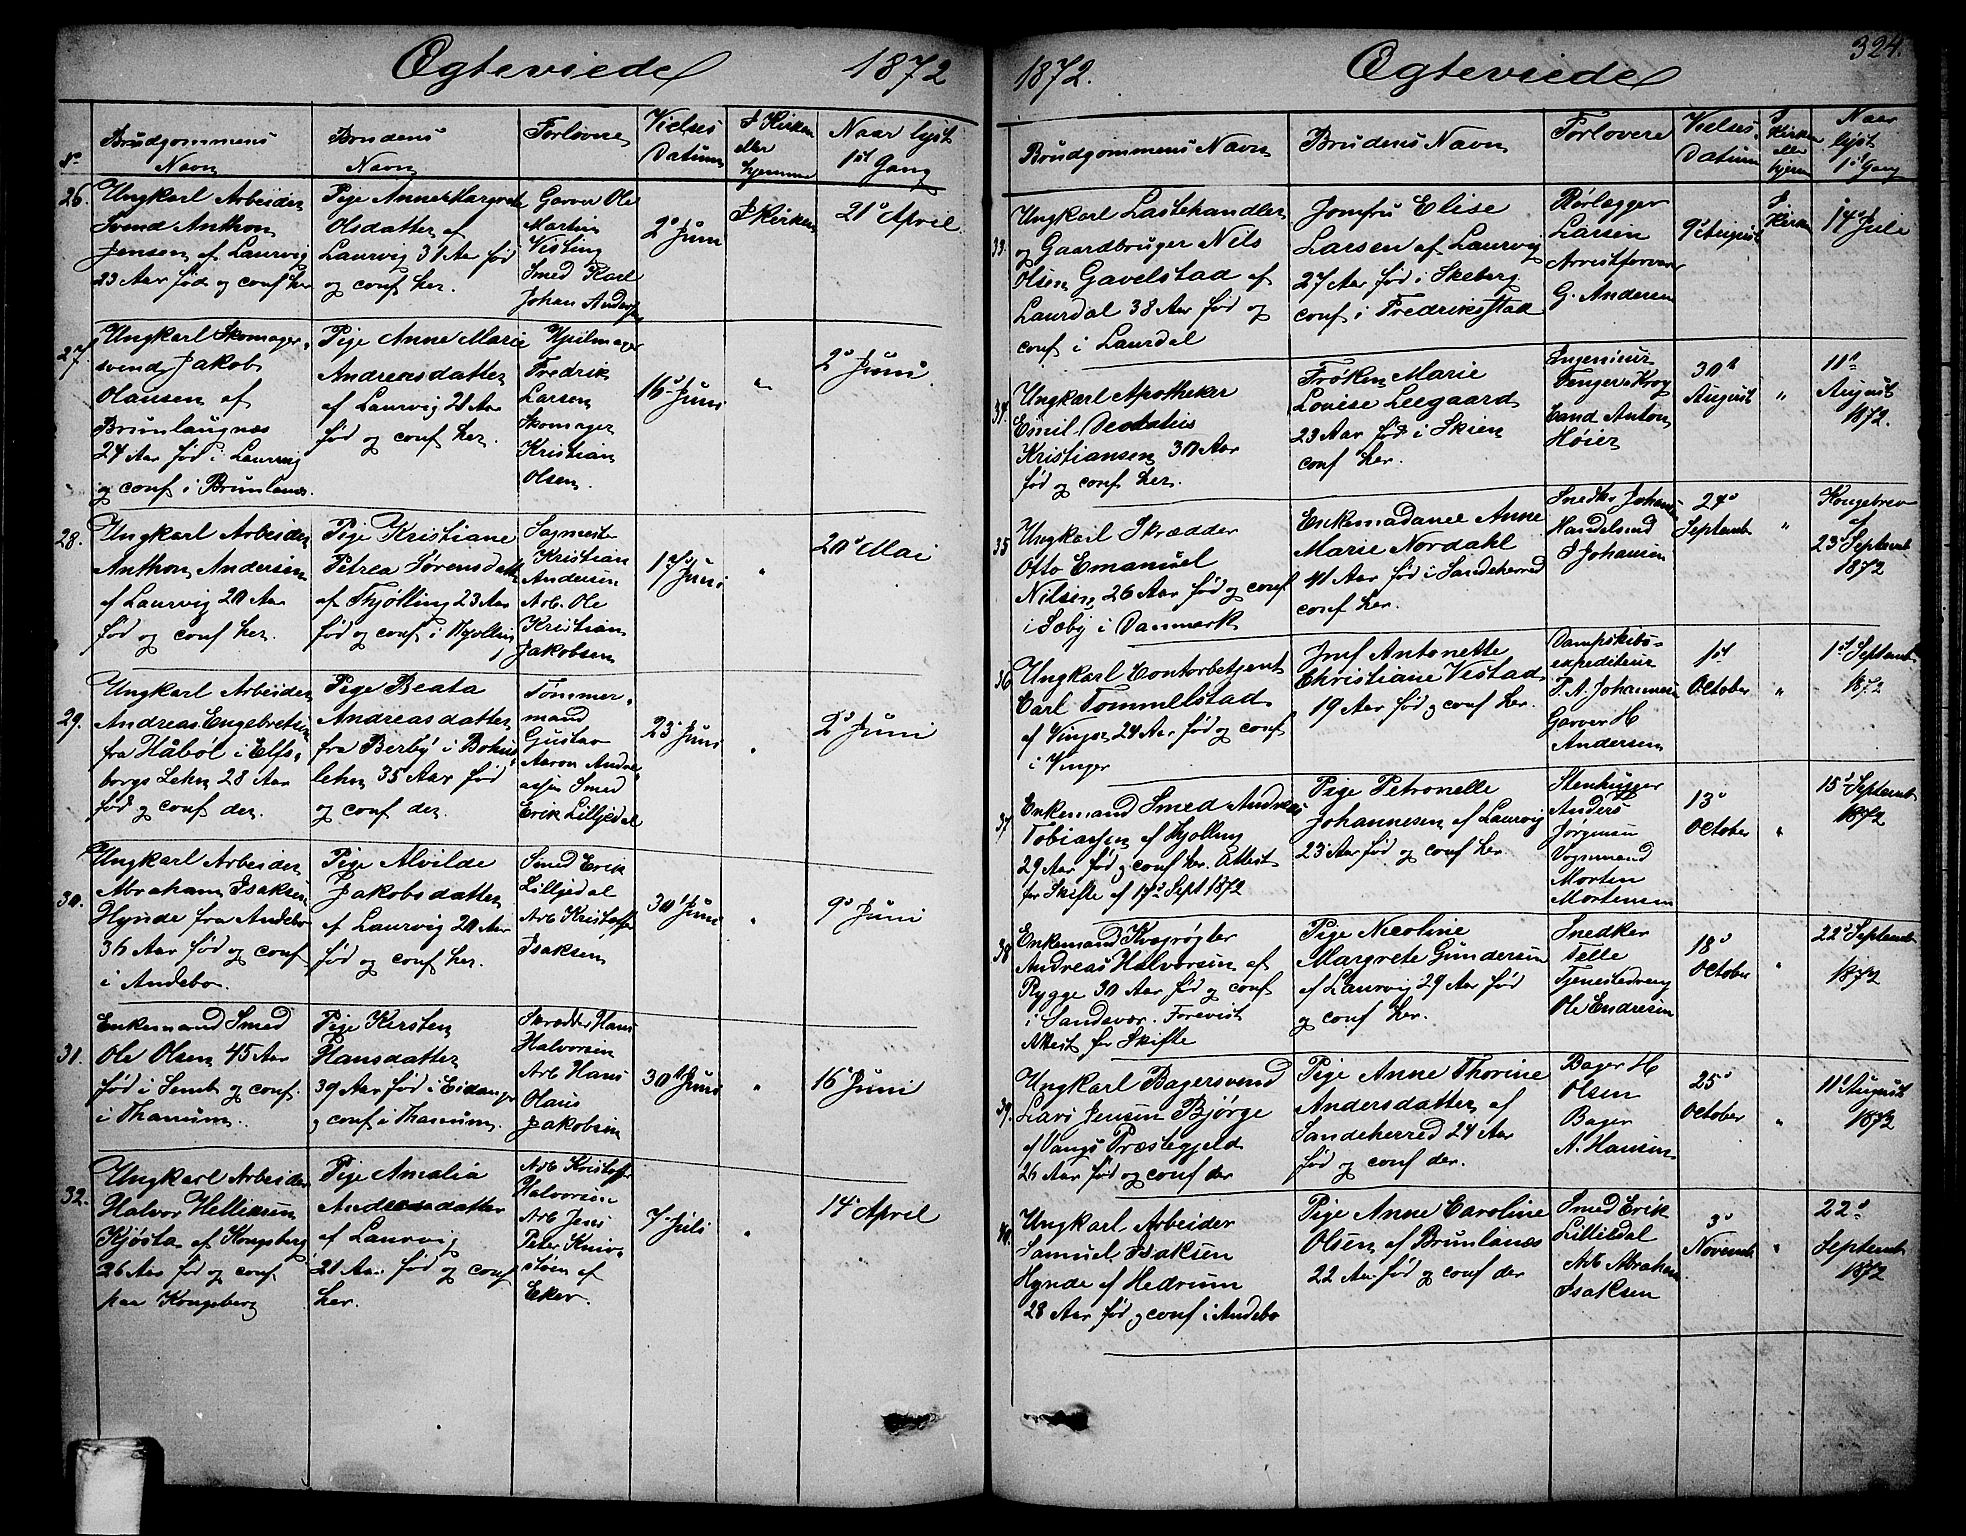 Ægteviede 1872
No
Brudgommens Navn
Brudens Navn
Forlovere
Vielses Datum
I Kirken eller hjemme
Naar lyst 1ste Gang
26.
Ungkarl Arbeider
Svend Anthon
Jensen af Laurvig
23 Aar født og conf her
Pige Anne Margrete
Olsdatter af
Laurvig 31 Aar fød
og conf her.
Garver Ole
Martin
Visting
Smed Karl
Johan Andersen
2d Juni
I Kirken
21d April
27.
Ungkarl Skomager-
svend Jakob
Olausen af
Brunlaugnæs
24 Aar fød i Laurvig
og conf i Brunlanæs.
Pige Anne Marie
Andreasdatter
af Laurvig 21 Aar
fød og conf her.
Hjulmager
Fredrik
Larsen
Skomager
Kristian
Olsen
16d Juni
"
2d Juni
28.
Ungkarl Arbeider
Anthon Andersen
af Laurvig 20 Aar
fød og conf her.
Pige Kristiane
Petrea Sørensdatt
af Thjølling 23 Aar
fød og conf i Hjølling
Sagmester
Kristian
Andersen
Arb. Ole
Kristian
Jakobsen
Juni
"
20d Mai
29.
Ungkarl Arbeider
Andreas Engebretsen
fra Håböl i Elfs-
borgs Lehn 28 Aar
fød og conf der.
Pige Beata
Andreasdatter
fra Berby i Bohus-
lehn 35 Aar fød
og conf der.
Tømmer-
mand
Gustav
Aaron Andre-
assen Smed
Erik Lilljedal
23d Juni
"
2d Juni
30.
Ungkarl Arbeider
Abraham Isaksen
Hynde fra Andebo
36 Aar fød og conf
i Andebo.
Pige Alvilde
Jakobsdatter
af Laurvig 20 Aar
fød og conf her.
Smed Erik
Lilljedal
Arb Kristoffer
Isaksen
30d Juni
"
9d Juni
31.
Enkemand Smed
Ole Olsen 45 Aar
fød i Semb og conf.
i Thanum.
Pige Kirsten
Hansdatter
39 Aar fød i Eidanger
og conf i Thanum.
Skrædder Hans
Halvorsen
Arb Hans
Olaus
Jakobsen
30d Juni
"
16d Juni
32.
Ungkarl Arbeider
Halvor Helliesen
Kjøsta af Kongsberg
26 Aar fød og conf
paa Kongsberg
Pige Amalia
Andreasdatter
af Laurvig
21 Aar fød og conf
her.
Arb Kristoffer
Halvorsen
Arb Jens
Peter Kniv-
støen af
Eker.
7d Juli
"
14d April
324.
1872. Ægteviede
Brudgommens Navn
Brudens Navn
Forlovere
Vielses Datum
I Kirken eller hjem
Naar lyst 1st Gang
33.
Ungkarl Lastehandler
og Gaardbruger Nils
Olsen Gavelstad af
Laurdal 38 Aar fød og
conf i Laurdal
Jomfru Elise
Larsen af Laurvig
27 Aar fød i Skeberg
conf i Fredriksstad
Rørlegger
Larsen
Arrestforvarer
G. Andersen
9d August
I Kirken
14d Juli
34.
Ungkarl Apotheker
Emil Deodatus
Kristiansen 30 Aar
fød og conf her.
Frøken Marie
Louise Leegaard
23 Aar fød i Skien
conf her.
Ingenieur
Fenger-Krog
Cand Anton
Høier
30d
August
"
11d
August
1872.
35
Ungkarl Skrædder
Otto Emanuel
Nilsen 26 Aar fød og conf
i Sæby i Danmark
Enkemadame Anne
Marie Nordahl
41 Aar fød i Sandeherred
conf her.
Snedker Johansen
Handelsmd
J Johansen
24d
Septemb
"
Kongebrev
af
23d Septemb
1872
36
Ungkarl Contorbetjent
Carl Tommelstad
af Vinger 24 Aar fød og conf
i Vinger
Jmf Antonette
Christiane Vestad
19 Aar fød og conf her.
Dampskibs-
expediteur
P. A. Johannesen
Garver H
Andersen
1st
October
"
1st Septemb
1872
37
Enkemand Smed Andreas
Tobiassen af Hjølling
29 Aar fød og conf her. Attest
for Skifte af 17d Sept 1872
Pige Petronelle
Johannesen af Laurvig
23 Aar fød og conf her.
Stenhugger
Anders
Jørgensen
Vognmand
Morten
Mortensen
13d
October
"
15d Septemb
1872
38
Enkemand Kvægrøgter
Andreas Halvorsen af
Rygge 30 Aar fød og conf
i Sandsvær. Forevist
Attest for Skifte
Pige Nicoline
Margrete Gundersen
af Laurvig 29 Aar fød
og conf her.
Snedker
Telle
Tjenestedreng
Ole Endresen
18d
October
"
22d Septemb
1872
39.
Ungkarl Bagersvend
Lars Jensen Bjørge
af Vangs Præstegjeld
26 Aar fød og conf der
Pige Anne Thorine
Andersdatter af
Sandeherred 24 Aar
fød og conf der.
Bager H
Olsen
Bager
A. Hansen
25d
October
"
11d August
1872
40.
Ungkarl Arbeider
Samuel Isaksen
Hynde af Hedrum
28 Aar fød og conf i Andebo
Pige Anne Caroline
Olsen af Brunlanæs
22 Aar fød og conf der
Smed Erik
Lilliedal
Arb Abraham
Isaksen
3d
Novemb
"
22d
Septemb
1872